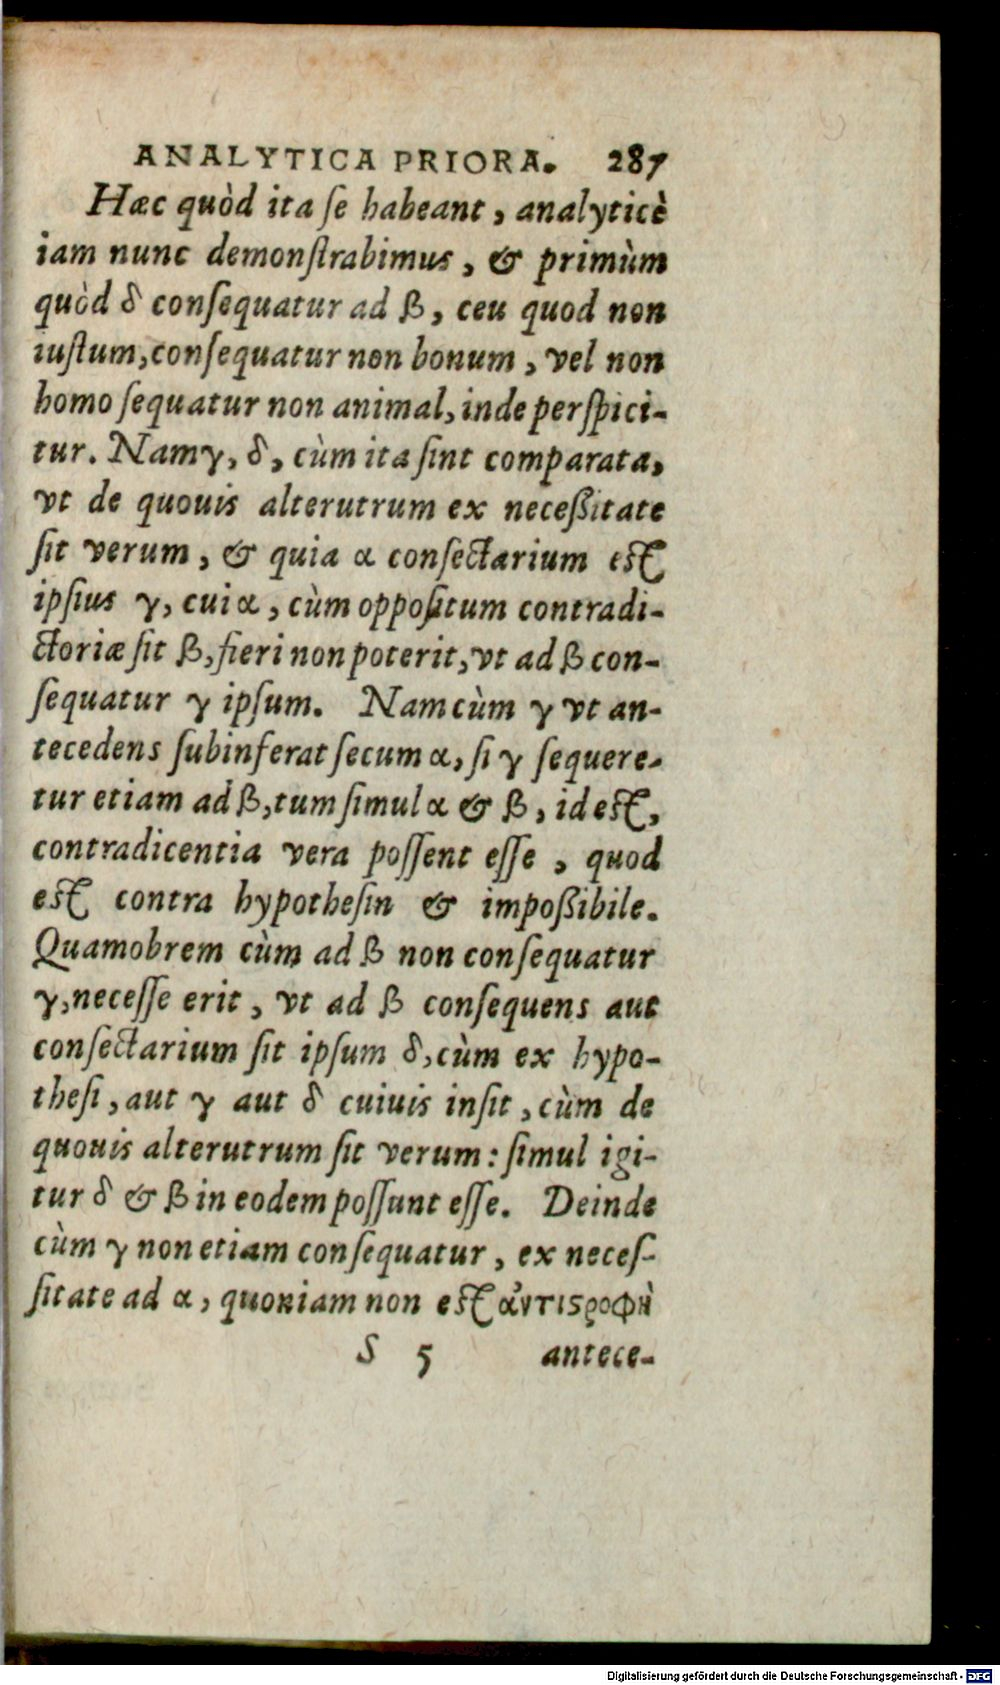 ANALYTICA PRIORA. 287
Hæc quòd ita ſe habeant, analyticè
iam nunc demonſtrabimus, & primùm
quòd δ conſequatur ad β, ceu quod non
iuſtum, conſequatur non bonum, vel non
homo ſequatur non animal, inde perſpici-
tur. Nam γ, δ, cùm ita ſint comparata,
vt de quouis alterutrum ex neceßitate
ſit verum, & quia α conſectarium eſt
ipſius γ, cui α, cùm oppoſitum contradi-
ctoriæ ſit β, fieri non poterit, vt ad β con-
ſequatur γ ipſum. Nam cùm γ vt an-
tecedens ſubinferat ſecum α, ſi γ ſequere-
tur etiam ad β, tum ſimul α & β, id eſt,
contradicentia vera poſſent eſſe, quod
eſt contra hypotheſin & impoßibile.
Quamobrem cùm ad β non conſequatur
γ, neceſſe erit, vt ad β conſequens aut
conſectarium ſit ipſum δ, cùm ex hypo-
theſi, aut γ aut δ cuiuis inſit, cùm de
quouis alterutrum ſit verum: ſimul igi-
tur δ & β in eodem poſſunt eſſe. Deinde
cùm γ non etiam conſequatur, ex neceſ-
ſitate ad α, quoniam non eſt ἀντιϛροφὴ
S 5 antece-
Digitalisierung gefördert durch die Deutsche Forschungsgemeinschaft - DFG